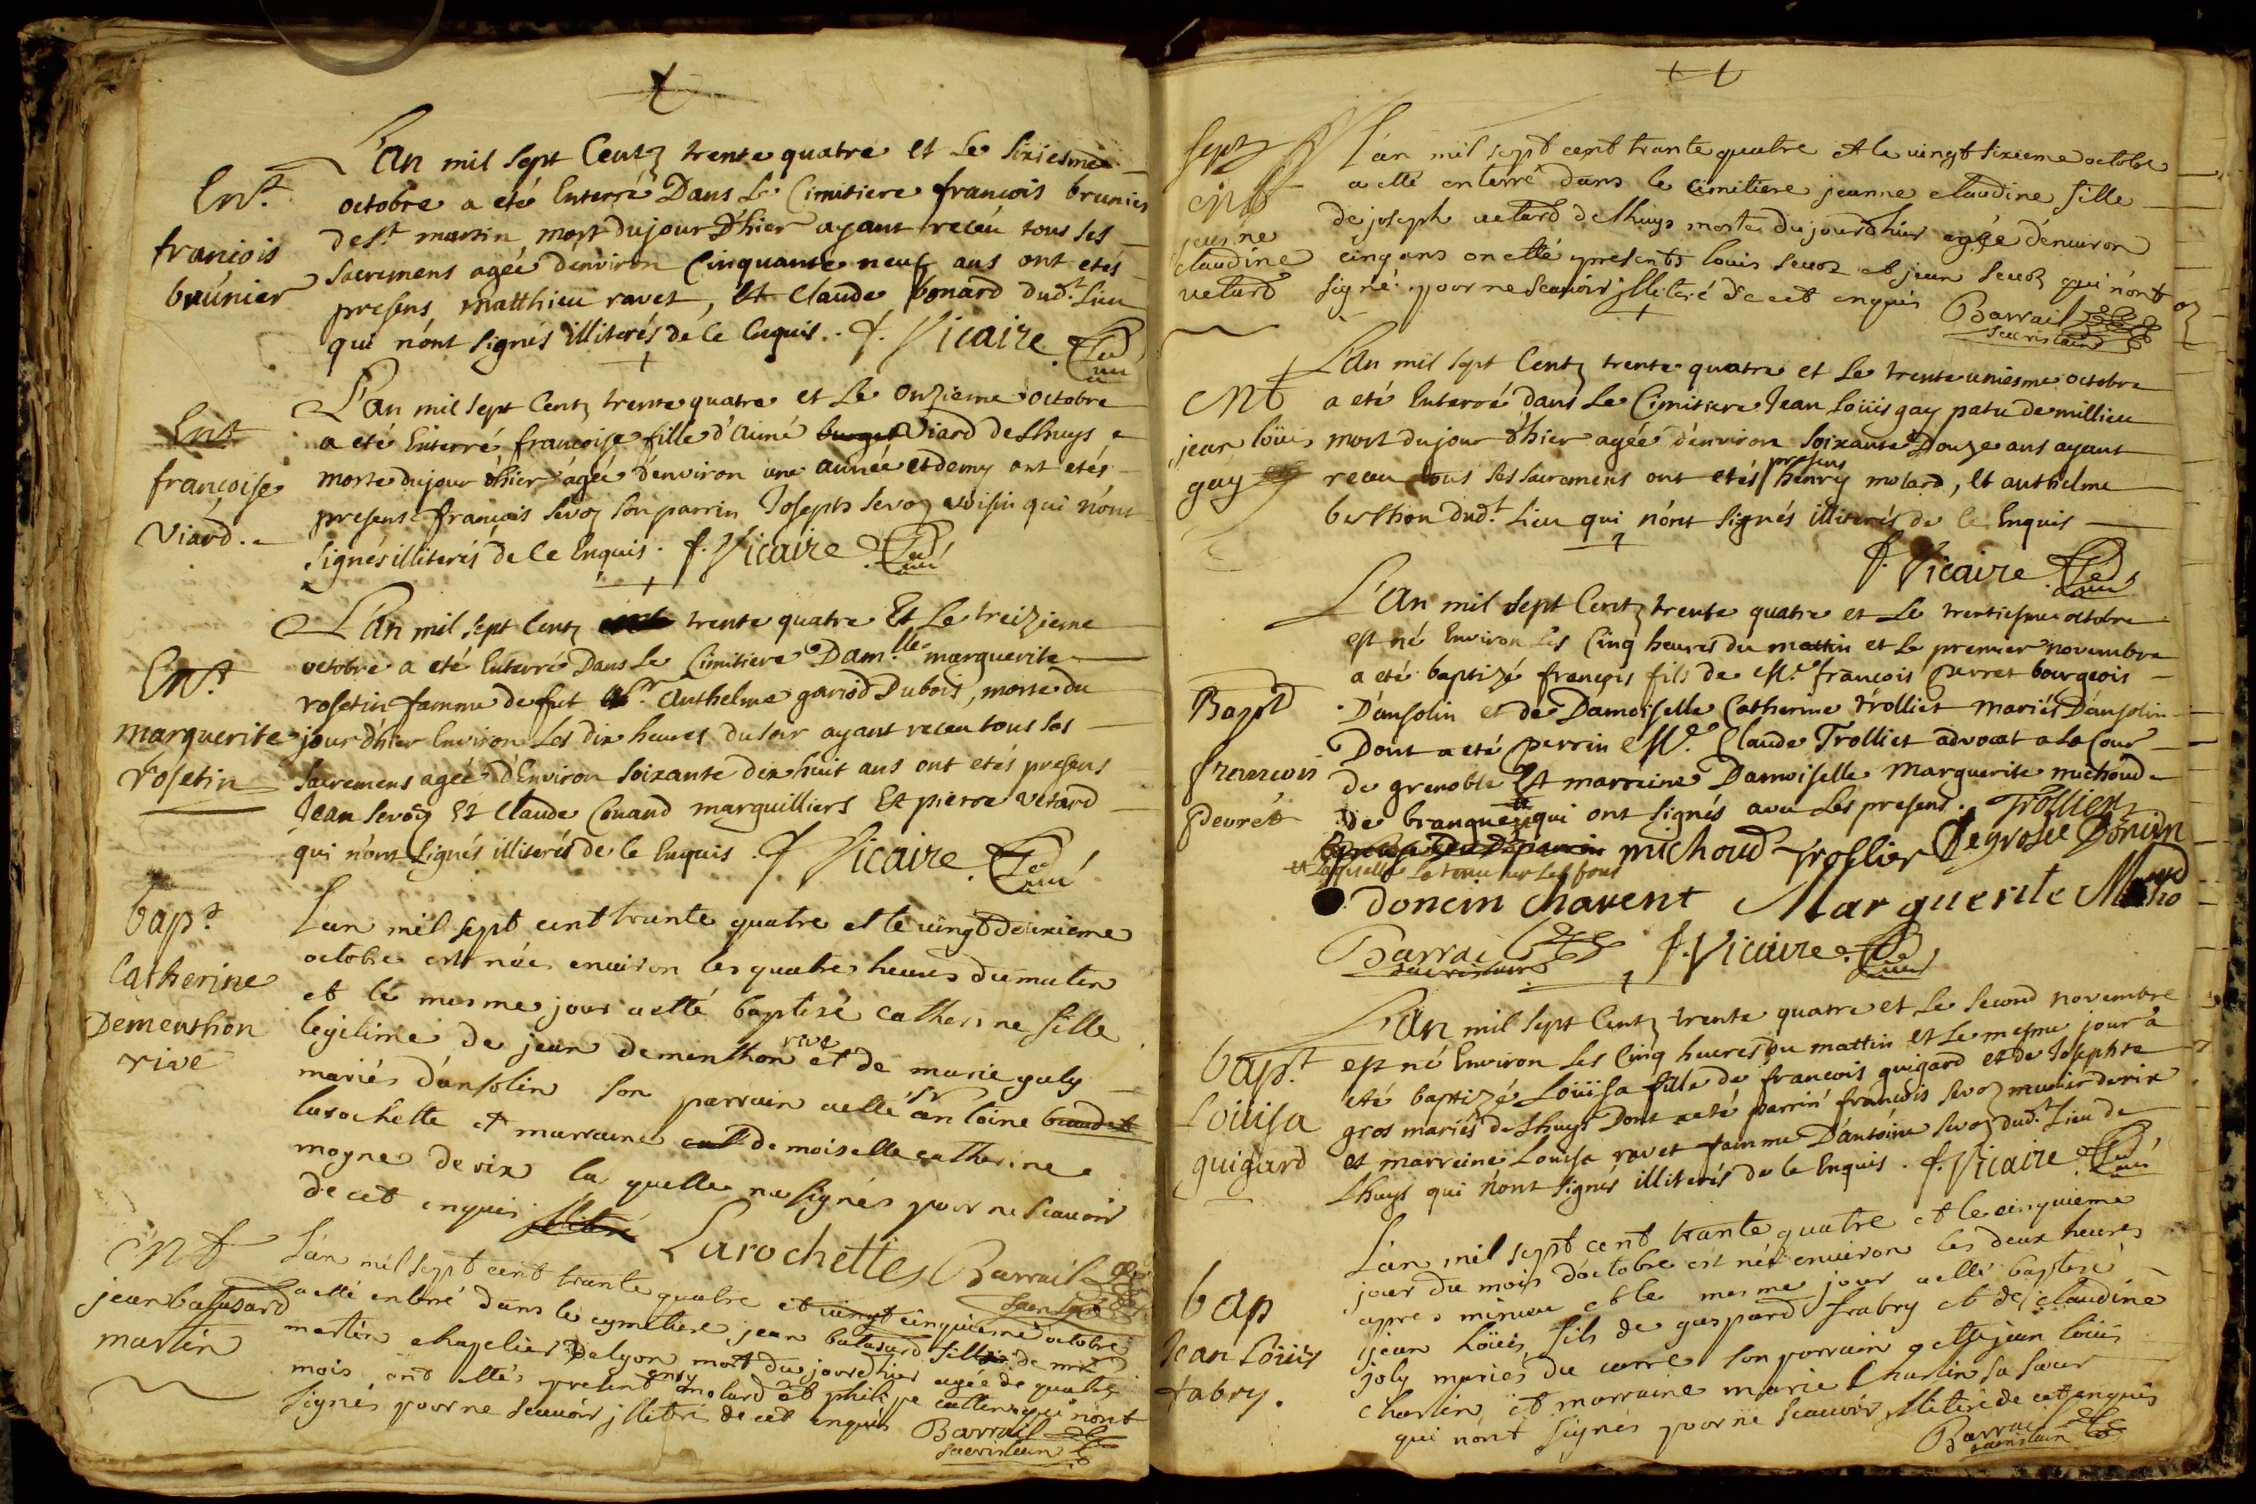 Ent.
francois
brunier
L'an mil sept Centz trente quatre et Le sixiesme
octobre a eté Enterré Dans Le Cimitiere francois brunier
de st. martin mort du jour D'hier ayant receu tous ses
sacremens agée d'environ Cinquante neuf ans ont etés
presens matthieu ravet, Et Claude bonard dud.t Lieu
qui n'ont signés illiterés de Ce Enquis. f. Vicaire Curé
Ent
françoise
Viard.
L'an mil sept Centz trente quatre et Le onzieme octobre
a eté Enterré françoise fille d'aimé Viard de Lhuys
morte du jour d'hier agée d'environ une année et demy ont etés
presens francois sevoz son parrin Joseph sevoz voisin qui n'ont
signés illiterés de Ce Enquis. f. Vicaire Curé
Ent.
marguerite
rosetin
L'an mil sept Centz trente quatre Et Le treizieme
octobre a eté Enterré Dans Le Cimitiere Dam.lle marguerite
rosetin famme de fut Sr. Anthelme gariod Dubois, morte du
jour d'hier Environ Les dix heures du soir ayant receu tous ses
sacremens agée d'Environ soixante dix huit ans ont etés presens
Jean sevoz Et Claude Conand marguilliers Et pierre verard
qui n'ont signés illiterés de Ce Enquis. f. Vicaire Curé
bap.t
Catherine
Dementhon
rive
L'an mil sept cent trante quatre et le vingt deuxieme
octobre est née environ les quatre heures du matin
et le mesme jour a etté baptisé catherine fille
legitime de jean dementhon rive et de marie galy
mariés d'ansolin son parrain a etté sr antoine
larochette et marraine demoiselle catherine
moyne de rix la quelle na signés pour ne scavoir
de cet enquis Larochette Barrail sacristain
ent
jean balasard
martin
L'an mil sept cent trante quatre et vingt cinquiesme octobre
a etté enterré dans le cymetiere jean balasard fils de
martin chapelier de lyon mort du jourdhier agée de quatre
mois ont ettés present enry molard et philipe qui n'ont
signés pour ne scavoir jlliteré de cet enquis Barrail
sacristain
sept
ent
jeanne
claudine
vetard
L'an mil sept cent trante quatre et le vingt sixieme octobre
a etté enterré dans le cimitiere jeanne claudine fille
de joseph vetard de lhuys morte du jourdhier agée d'environ
cinq ans on etté presents louis sevoz et jean sevoz qui n'ont
signé pour ne scavoir jlliteré de cet enquis Barrail
sacristain
ent
jean loüis
gay
L'an mil sept Centz trente quatre et Le trente uniesme octobre
a eté Enterré dans Le Cimitiere Jean Loüis gay patu de millieu
mort du jour d'hier agée d'environ soixante Douze ans ayant
receu tous ses sacremens ont etés presens henry molard, Et anthelme
berthon dud.t Lieu qui n'ont signés illiterés de Ce Enquis
f. Vicaire Curé
Bapt
françois
perret
L'an mil sept Centz trente quatre et Le trentiesme octobre
est né Environ Les Cinq heures du mattin et Le premier novembre
a eté baptizé françois fils de Me. francois perret bourgeois
D'ansolin et de Damoiselle Catherine Trolliet mariés D'ansolin
Dont a eté perrin Me. Claude Trolliet advocat a La Cour
de grenoble Et marreine Damoiselle marguerite michoud
de brangue qui ont signés avec Les presens. Trollier
michoud Trollier Degrolee Donin
laquelle La tenu sur Les fons
doncin Chavent Marguerite Michoud
Barrail sacristain f. Vicaire Curé
bap.t
Loüisa
guigard
L'an mil sept Centz trente quatre et Le second novembre
est né Environ Les Cinq heures du mattin et Le mesme jour a
eté baptizé Loüisa fille de francois guigard et de Josephte
gros mariés de Lhuys Dont a eté parrin francois sevoz munier de rix
et marreine Louisa ravet famme D'antoine sevoz dud.t Lieu de
Lhuys qui n'ont signés illiterés de Ce Enquis. f. Vicaire Curé
bap
Jean Loüis
fabry.
L'an mil sept cent trante quatre et le cinquieme
jour du mois d'octobre est nés environ les deux heures
apres minuit et le mesme jour a etté baptisé
jean Loüis fils de gaspard frabry et de claudine
joly mariés du carre son parrain a etté jean loüis
charlin et marraine marie Charlin sa sœur
qui n'ont signés pour ne scavoir jlliteré de cet enquis
Barrail
sacristain